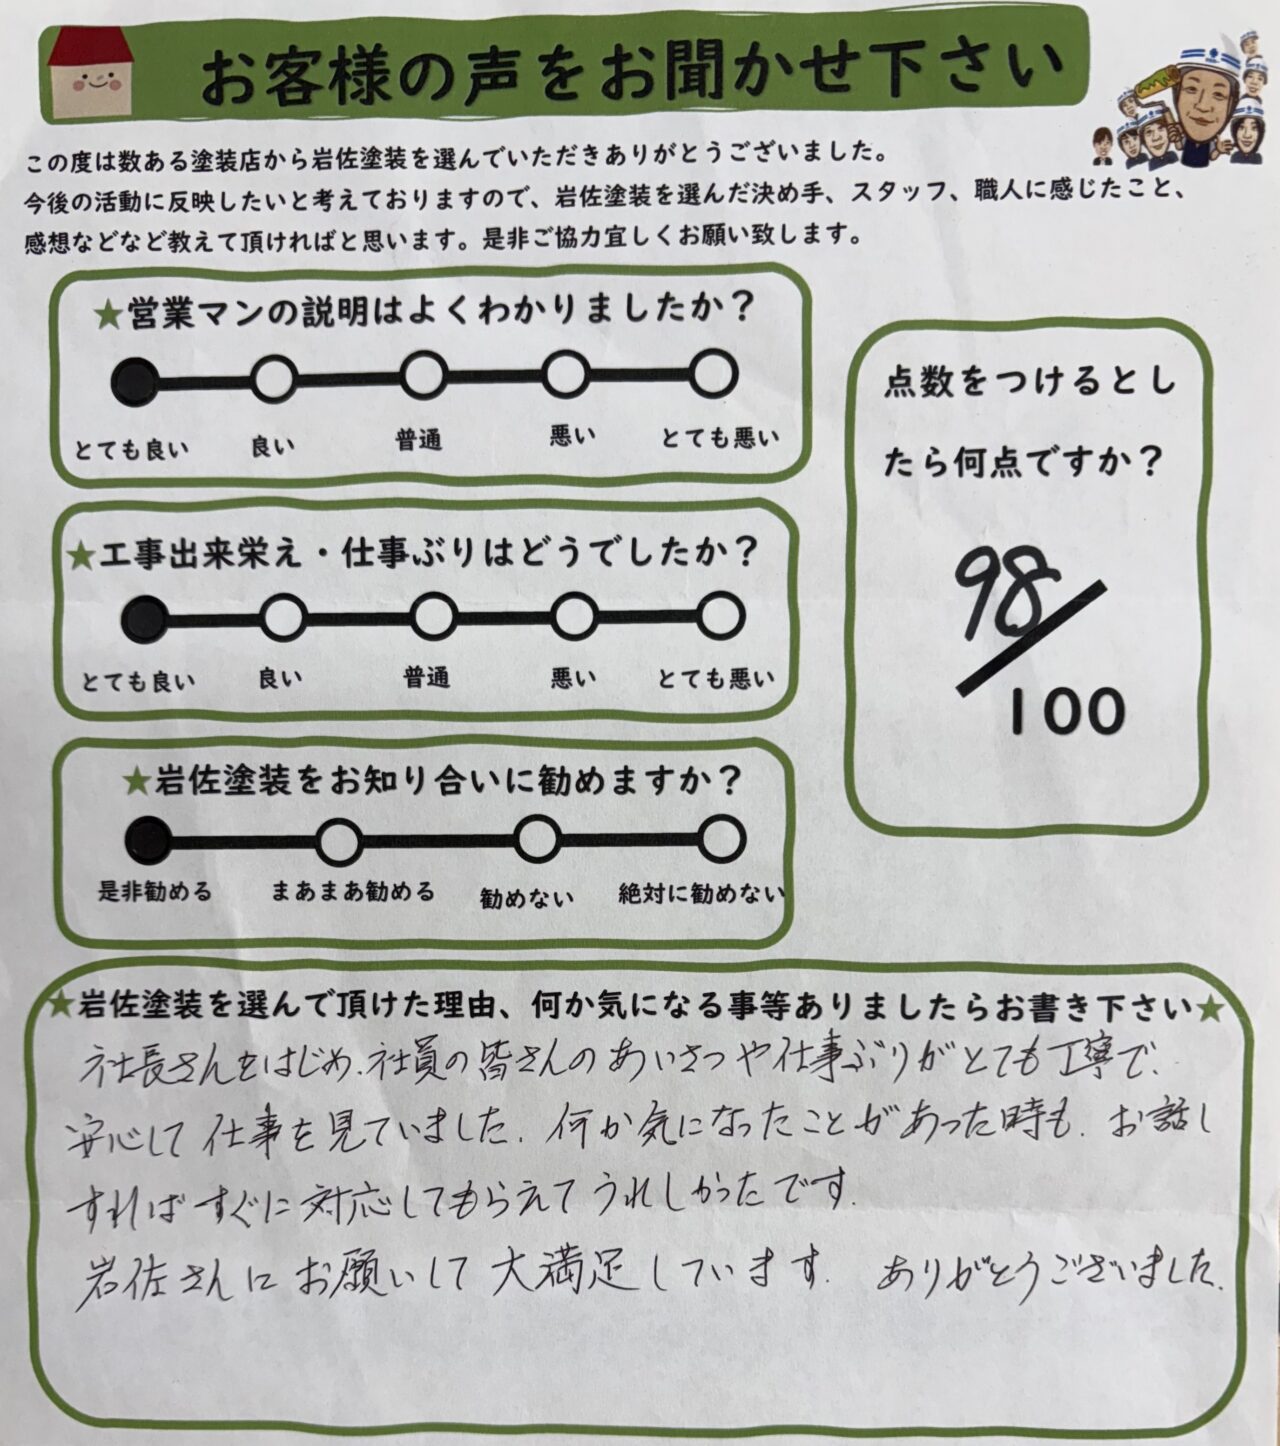 お客様の声をお聞かせ下さい
この度は数ある塗装店から岩佐塗装を選んでいただきありがとうございました。
今後の活動に反映したいと考えておりますので、岩佐塗装を選んだ決め手、スタッフ、職人に感じたこと、
感想などなど教えて頂ければと思います。是非ご協力宜しくお願い致します。
★営業マンの説明はよくわかりましたか？
とても良い 良い 普通 悪い とても悪い
★工事出来栄え・仕事ぶりはどうでしたか？
とても良い 良い 普通 悪い とても悪い
★岩佐塗装をお知り合いに勧めますか？
是非勧める まあまあ勧める 勧めない 絶対に勧めない
点数をつけるとし
たら何点ですか？
98
100
★岩佐塗装を選んで頂けた理由、何か気になる事等ありましたらお書き下さい★
社長さんをはじめ、社員の皆さんのあいさつや仕事ぶりがとても丁寧で、
安心して仕事を見ていました。何か気になったことがあった時も、お話し
すればすぐに対応してもらえてうれしかったです。
岩佐さんにお願いして大満足しています。 ありがとうございました。